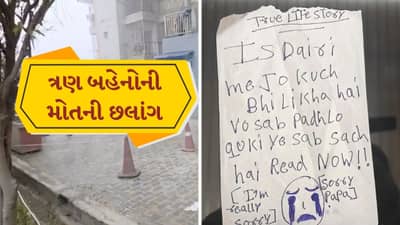 ત્રણ બહેનોની
મોતની છલાંગ
True Life Story
Is Dairi
me Jo kuch
Bhi Likha hai
vo sab Padhlo
quki ye sab sach
hai Read Now!!
[I'm really sorry]
[Sorry Papa]